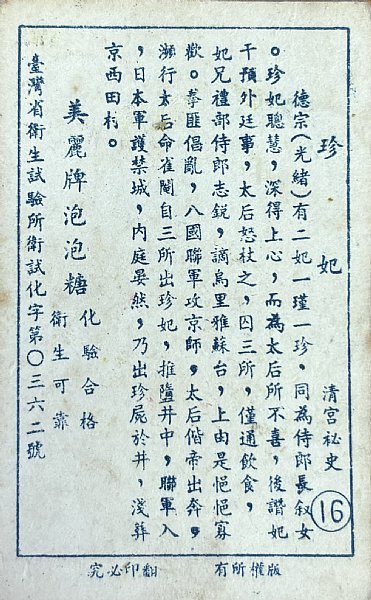 珍妃
清宮祕史
16
德宗(光緒)有二妃一瑾一珍,同為侍郎長叙女
。珍妃聰慧,深得上心,而為太后所不喜,後譖妃
干預外廷事,太后怒杖之,囚三所,僅通飲食,
妃兄禮部侍郎志銳,謫烏里雅蘇台,上由是悒悒寡
歡。拳匪倡亂,八國聯軍攻京師,太后偕帝出奔,
瀕行太后命崔閹自三所出珍妃,推墮井中,聯軍入
,日本軍護禁城,內庭晏然,乃出珍屍於井,淺葬
京西田村。
美麗牌泡泡糖
化驗合格
衛生可靠
臺灣省衛生試驗所衛試化字第〇三六二號
版權所有
翻印必究